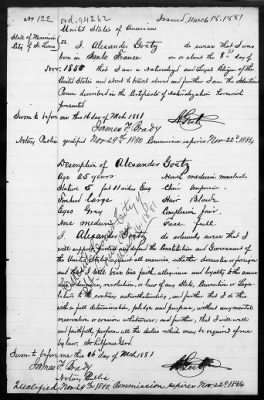 No. 122 ord. 94262 Issued March 18, 1881
United States of America
State of Missouri
City of St. Louis
I, Alexander Goetz do swear that I was
born in France on or about the 8th day of
Nov. 1855 that I am a Naturalized and Loyal Citizen of the
United States and about to travel abroad and further, I am the Identical
Person described in the Certificate of Naturalization herewith
presented
Sworn to before me this 16 day of Mch 1881
James F. Brady
Notary Public qualified Nov 29th 1880 Commission expires Nov 22d 1884
Description of Alexander Goetz
Age 25 years
Stature 5 feet 11 inches Eng
Forehead Large
Eyes Grey
Nose medium
Mouth medium mustache
Chin
Hair Black
Complexion fair
Face full
I, Alexander Goetz do solemnly swear that I
will support, protect and defend the Constitution and Government of
the United States against all enemies, whether domestic or foreign
and that I will bear true faith, allegiance and loyalty to the same
any ordinance, resolution, or law of any State, Convention or Legis-
lature to the contrary notwithstanding, and further that I do this
with a full determination, pledge and purpose, without any mental
reservation or evasion whatsoever, and further, that I will well
and faithfully perform all the duties which may be required of me
by law. So help me God
Sworn to before me this 16 day of Mch 1881
James F. Brady
Notary Public
Qualified Nov 29th 1880 Commission expires Nov 22d 1884